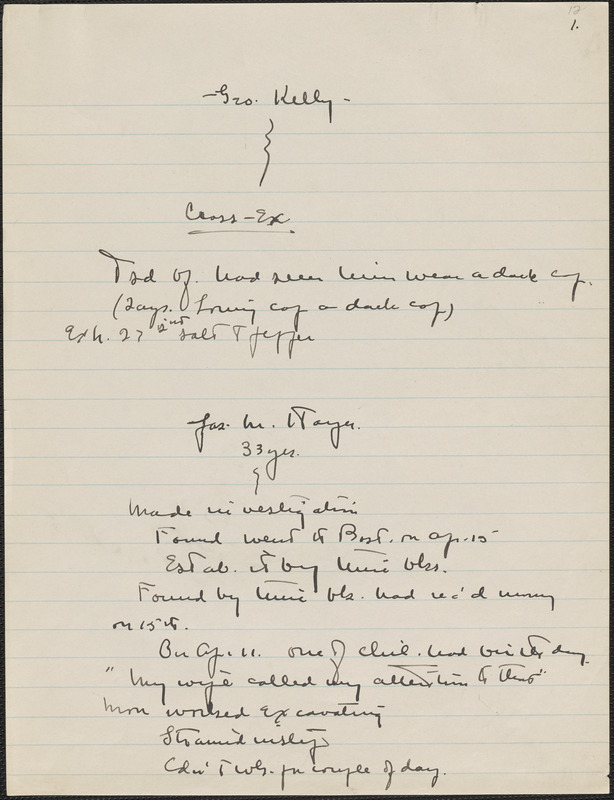 12
1.
- Geo. Kelly -
Cross-Ex.
Tsd of. had seen him wear a dark cap.
(Says. Loring cap a dark cap)
Exh. 27 isn't salt & pepper
Jas. M. Hayes.
33 yrs.
Made investigation
Found went to Bost. on Ap. 15
Estab. it by time bks.
Found by time bk. had rec'd money
on 15th.
On Ap. 11. one of chil. had birthday.
"My wife called my attention to that"
Mon worked Excavating
Steam'd
for couple of day.